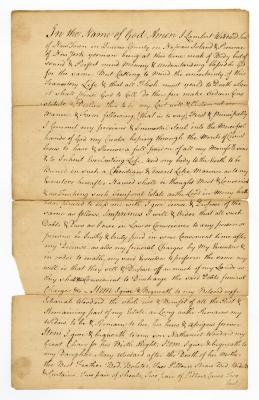 In the Name of God Amen I Lambert Woodard
of New Town in Queens County on Nassau Island & Province
of New York yeoman being at this time weak of Body but of
Sound & Perfect mind Memory & understanding blessed be God
for the same But Calling to Mind the uncertainty of this
Transitory Life & that all Flesh must yeald to Death when
it shall please God to Call I therefore make Ordain
& Declare this to be my Last will & Testament in
Manner & Form following (that is to say) First & Principally
I Commit my precious & Immortal Soul into the Merciful
hands of God my Creator hoping through the Merits of Christ
Jesus to have & Receive a full pardon of all my
& to Inherit Everlasting Life, And my body to the Earth to be
Buried in such a Christian & Decent Like Manner as to my
Executors hereafter Named shall be thought Meet & Convenient
& as Touching such Temporal Estate as the Lord in Mercy hath
been pleased to bestow on me I give & Dispose of the
same as follows Imprimis I will & Order that all such
Debts & Dues as I owe in Law or Conscience to any person or
persons be Justly & truly paid in some Convenient time after
my Decease as also my funeral Charges by my Executors &
in order to enable my said Executors to perform the same my
will is that they sell & Dispose of so much of my Lands as
they shall Convenient to Discharge the said Debts funeral
Charges &c Item I give & Bequeath to my Beloved wife
Woodard the whole use & Benefit of all the Rest &
Remaining part of my Estate as Long as she Remains my
widow to be & Remain to her, her heirs & assigns forever
Item I give & bequeath to my son Nathaniel Woodard my
Great Chair for his Birth Right Item I give & bequeath to
my Daughter Mary Woodard after the Death of his Mother
the Best Feather Bed, Bolster, two Pillows
& Curtains Two pair of Sheets, Two pair of Pillow Cases